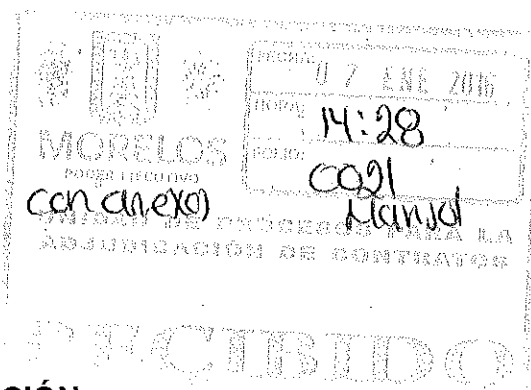 FECHA: 07 ENE 2016
HORA: 14:28
MORELOS
PODER EJECUTIVO
FOLIO: 0021
con anexo)
Marisol
UNIDAD DE PROCESOS PARA LA
ADJUDICACIÓN DE CONTRATOS
RECIBIDO
CIÓN